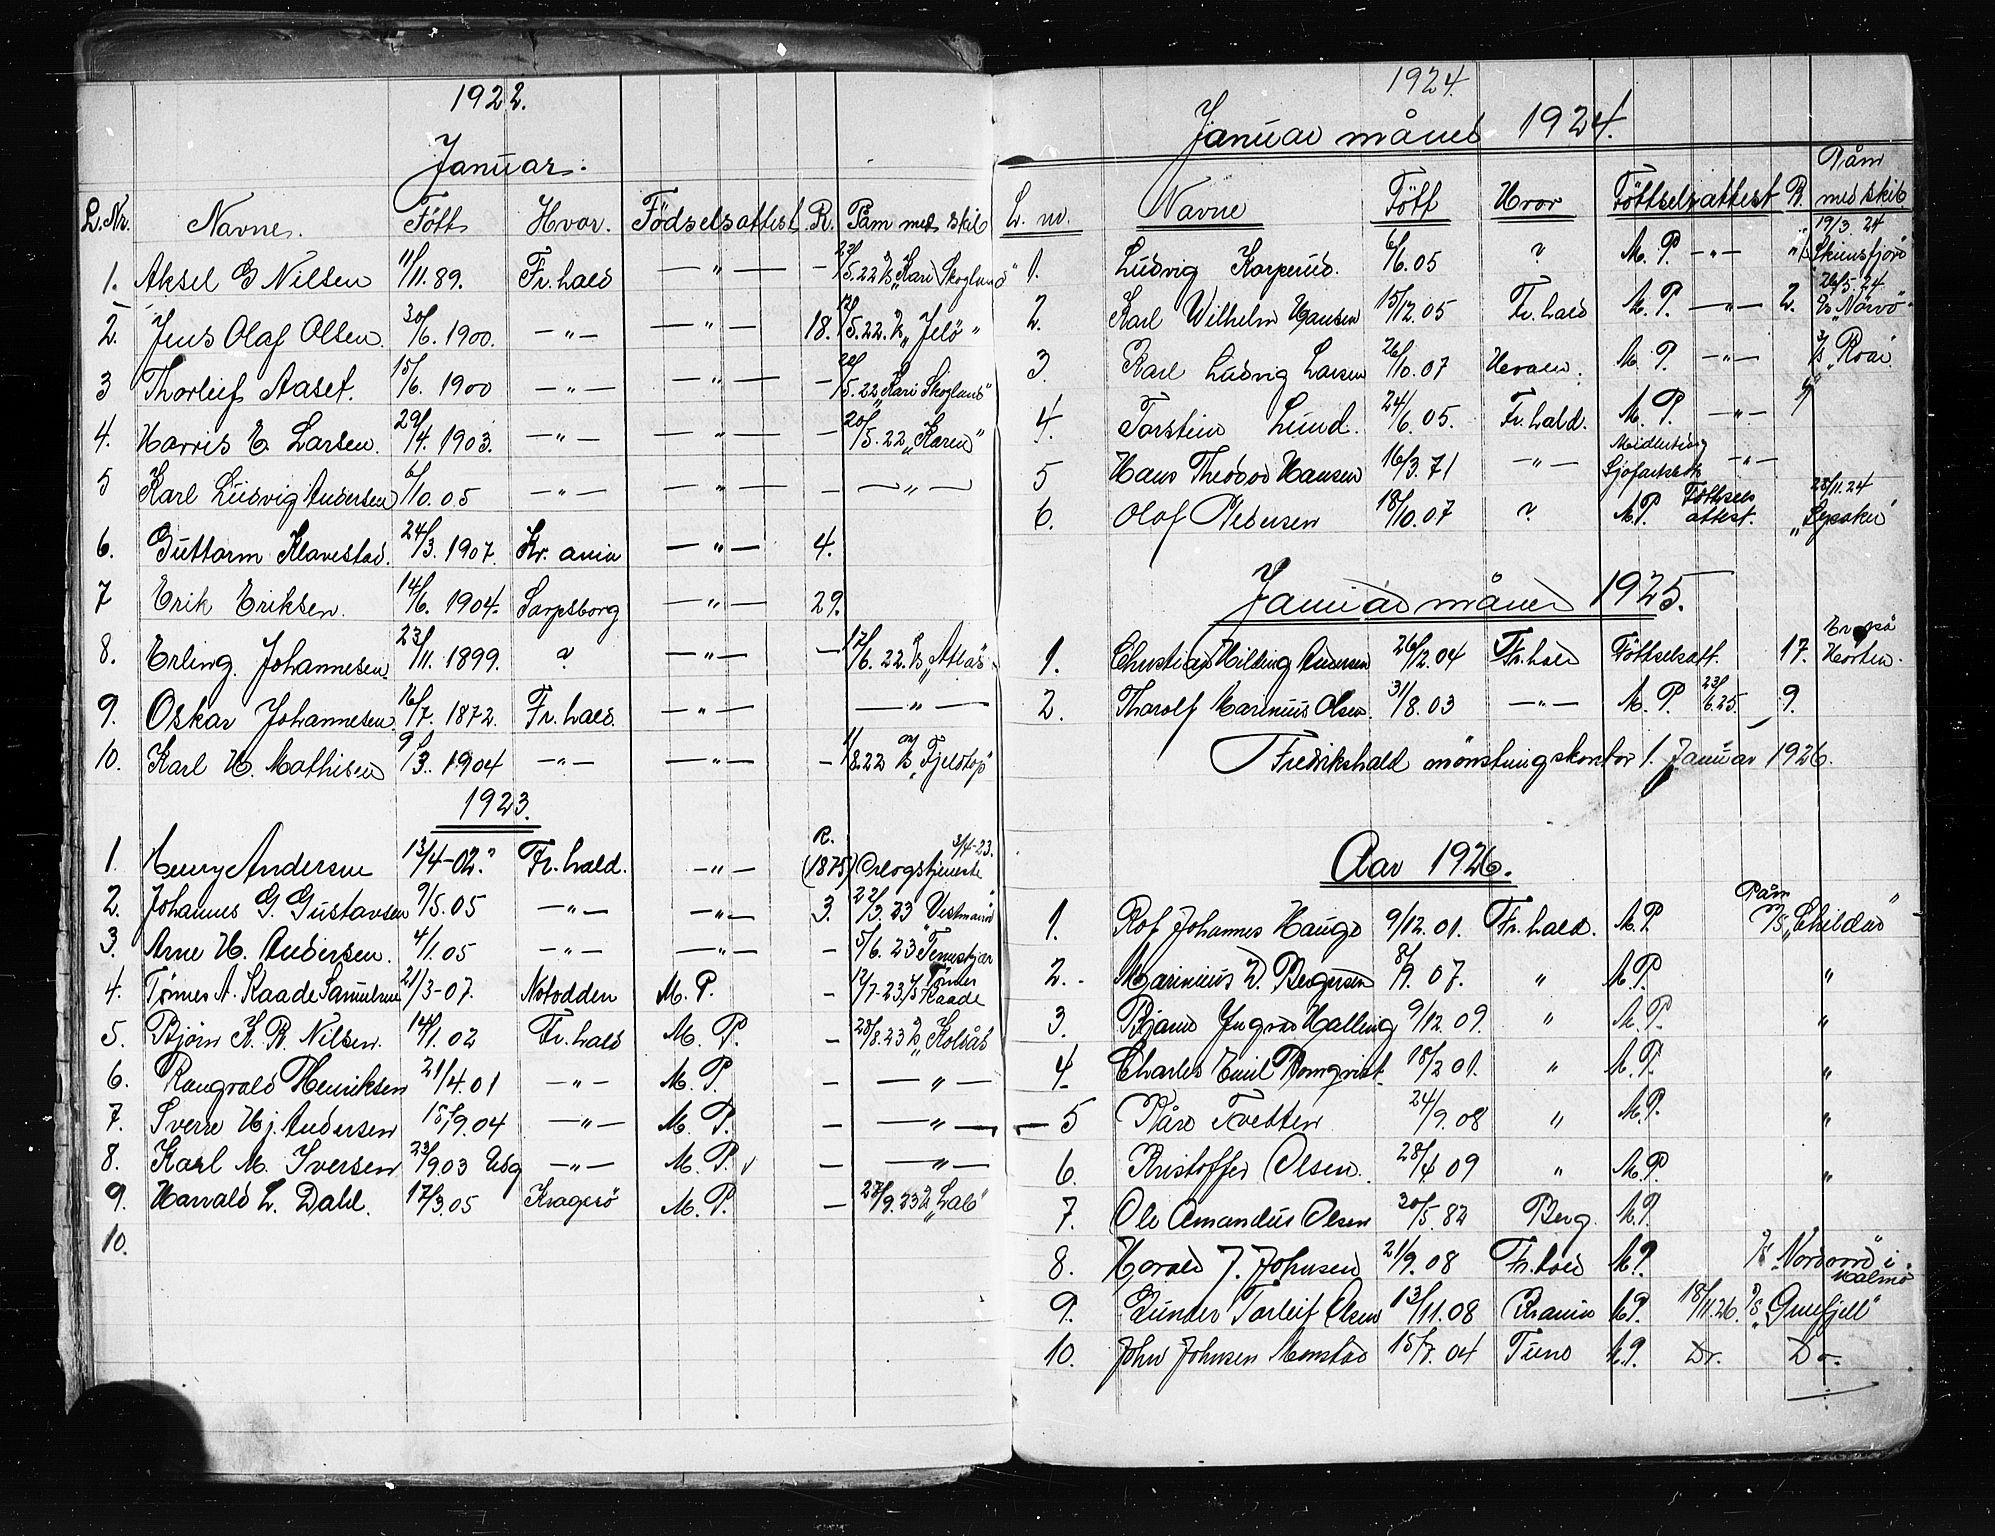 1922.
Januar.
L. Nr. Navne. Født Hvor. Fødselsattest R. Påm med skib
1. Aksel G Nilsen 11/11. 89. Fr.hald — " — – 23/5.22 D/S „Kari Skogland"
2. Jens Olaf Olsen. 30/6. 1900. — " — — " — 18. 18/5.22. D/S „Jelö"
3 Thorleif Aaset. 15/6. 1900 — " — — " — – 20/5.22 „Kari Skogland"
4. Harris E. Larsen. 29/4. 1903. — " — — " — – 20/5.22 „Karen"
5 Karl Ludvig Andersen 6/10.05 — " — — " — – — " —
6. Guttorm Klavestad. 24/3. 1907. Kr.ania — " — 4.
7 Erik Eriksen. 14/6. 1904. Sarpsborg — " — 29.
8. Erling. Johannesen. 23/11. 1899. ? — " — – 17/6.22. D/S „Atlas"
9. Oskar Johannesen. 16/7. 1872. Fr.hald. — " — — " —
10. Karl H. Mathisen 9/3. 1904 — " — — " — – 1/8.22 D/S „Fjeldtop"
1923.
R. 3/4-23.
1. Henry Andersen 13/4-02. Fr.hald. — " — (1875) Orlogstjeneste
2. Johannes G. Gustavsen 9/5.05 — " — — " — 3. 22/3.23
3. Arne H. Andersen. 4/1.05 — " — — " — – 5/6.23
4. Tønnes A. Kaade Samuelsen 21/3-07. Notodden M. P. – 12/7-23 D/S Tønnes Kaade
5. Bjørn K. B. Nilsen. 14/1.02 Fr.hald M. P. – 28/8.23 D/S „Kolsås
6. Rangvald Henriksen 21/4.01 — " — M. P. – — " —
7. Sverre Hj. Andersen 15/9.04 — " — M. P. – — " —
8. Karl M. Iversen 23/9.03 — " — M. P. – — " —
9. Harvald L. Dahl. 17/3.05 Kragerö M. P. – 27/9.23 D/S
10.
1924.
Januar måned 1924.
L. nr. Navne Född Hvor Föttselsattest R. Påm med skib
1. Ludvig Karperud. 6/6.05 ? M. P. — " — 19/3. 24
2. Karl Wilhelm Hansen 15/12.05 Fr.hald M. P. — " — 2. 26/5.24 D/S „Narvö"
3. Karl Ludvig Larsen 26/10.07 M. P. — " — „Roai"
4. Torstein Lund. 24/6.05. Fr.hald. M. P. — " —
5 Hans Theodor Hansen 16/3.71 — " — Midlertidig Sjöfartsbok — " —
6. Olaf Pedersen 18/10.07 ? M.P. Föttsels attest. 28/11.24 „Lysaker"
Januar måned 1925.
1. Christian Hilding Andersen 26/2.04 Fr.hald Föttselsatt. 17. Er på Horten.
2. Tharolf Marinius Olsen. 31/8.03 — " — M. P. 23/6.25. 9.
Fredrikshald mönstringskontor 1. Januar 1926.
Aar 1926.
1. Rolf Johannes Hauge 9/12.01. Fr.hald. M.P. Påm D/S „Childar"
2. Marinius D. Bergersen 8/9. 07. " M.P. "
3. Bjarne Ingvar Halling 9/12.09. " M.P. "
4. Charles Emil Romqvist. 18/2 01. " M.P. "
5 Kåre Tvetten 24/9.08 " M.P. "
6 Kristoffer Olsen. 28/4 09 " M.P. "
7. Ole Amandus Olsen 30/5.82 Berg. M.P.
8. Harald J. Johnsen 21/9.08 Fr.hald M.P. D/S „Nordvard" i Malmö
9. Gunder Torleif Olsen 13/11.08 Krania M.P. 18/11.26.
10. John Johnsen Monstad 15/7.04 Tune M.P. Do. Do.